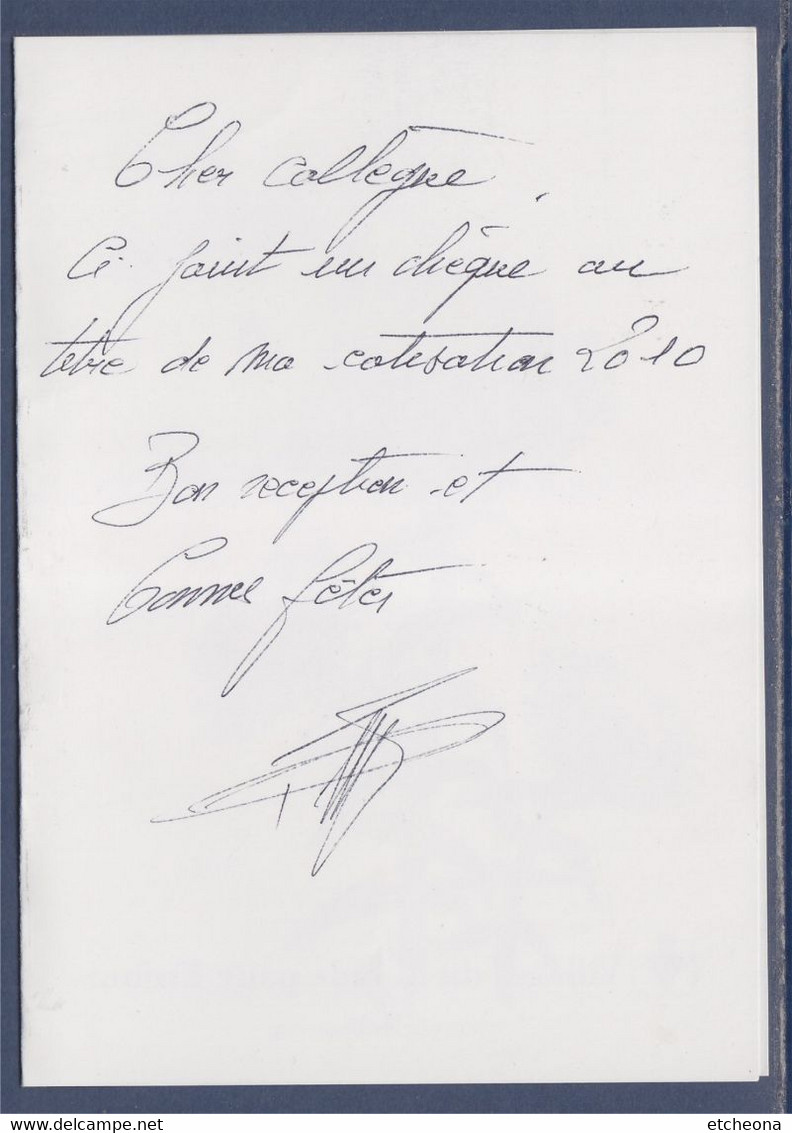 Cher collègue,
Ci-joint un chèque au
titre de ma cotisation 2010
Bon reception et
bonnes fêtes
etcheona